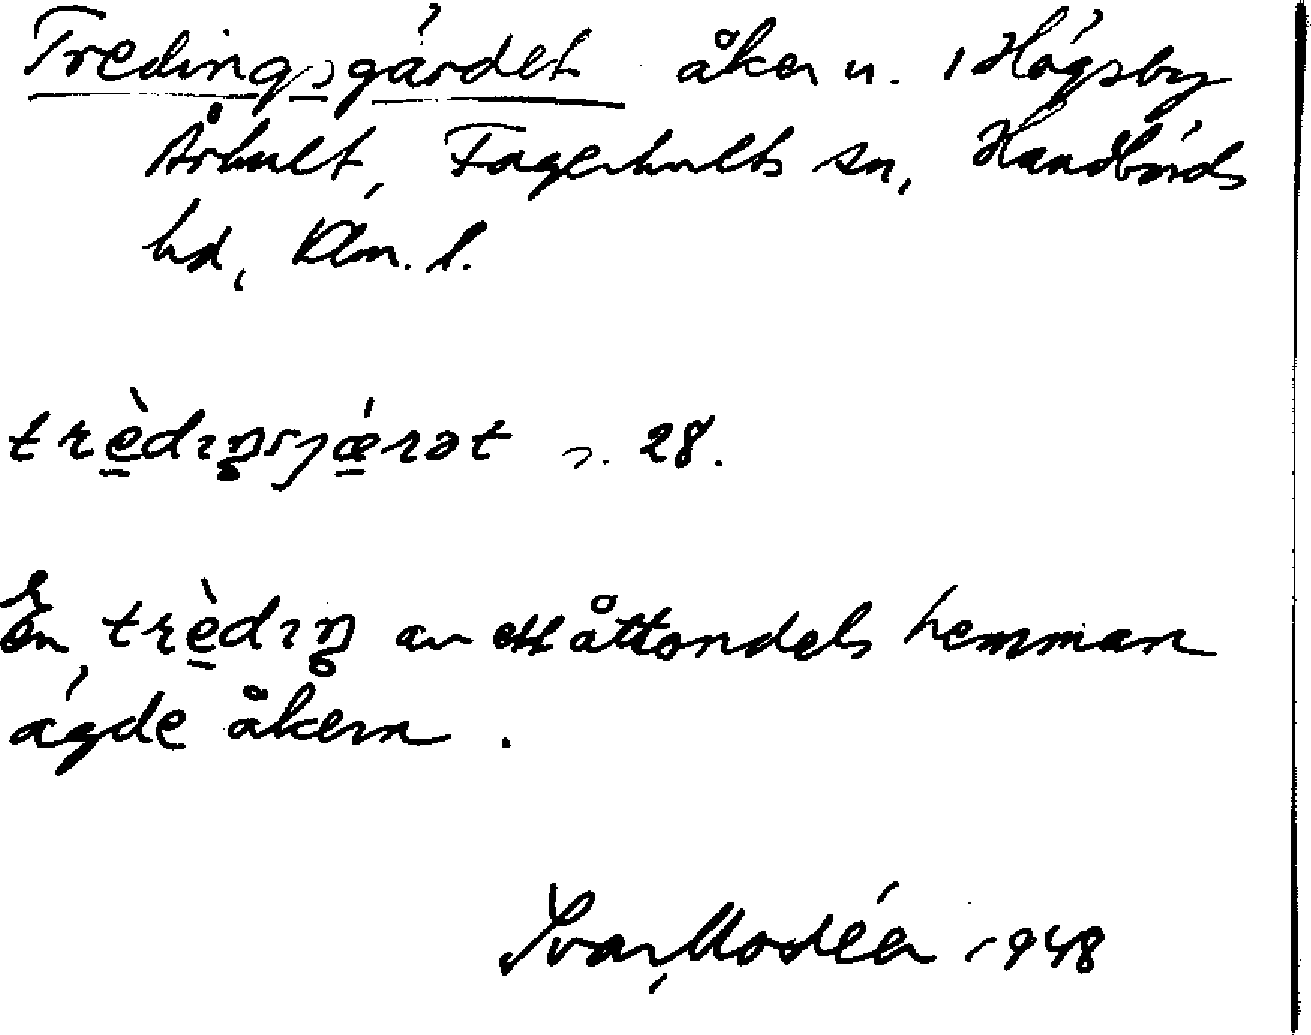 Tredingsgärdet åker n. i Högsby
Århult, Fagerhults sn, Handbörds
hd, Klm. l.
trèdıŋsjǽrət s. 28.
En trèdıŋ av ett åttondels hemman
ägde åkern.
Ivar Modéer 1948